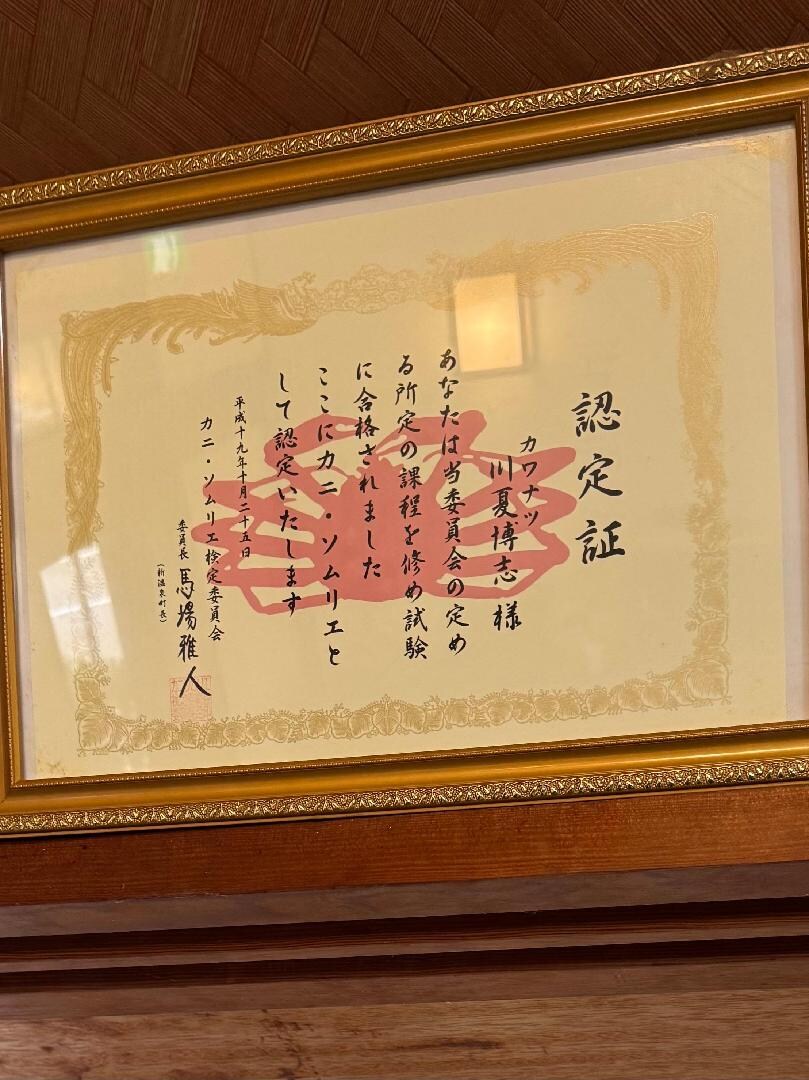 認定証
カワナツ
川夏博志様
あなたは当委員会の定め
る所定の課程を修め試験
に合格されました
ここにカニ・ソムリエと
して認定いたします
平成十九年十月二十五日
カニ・ソムリエ検定委員会
委員長 馬場雅人
(新温泉町長)